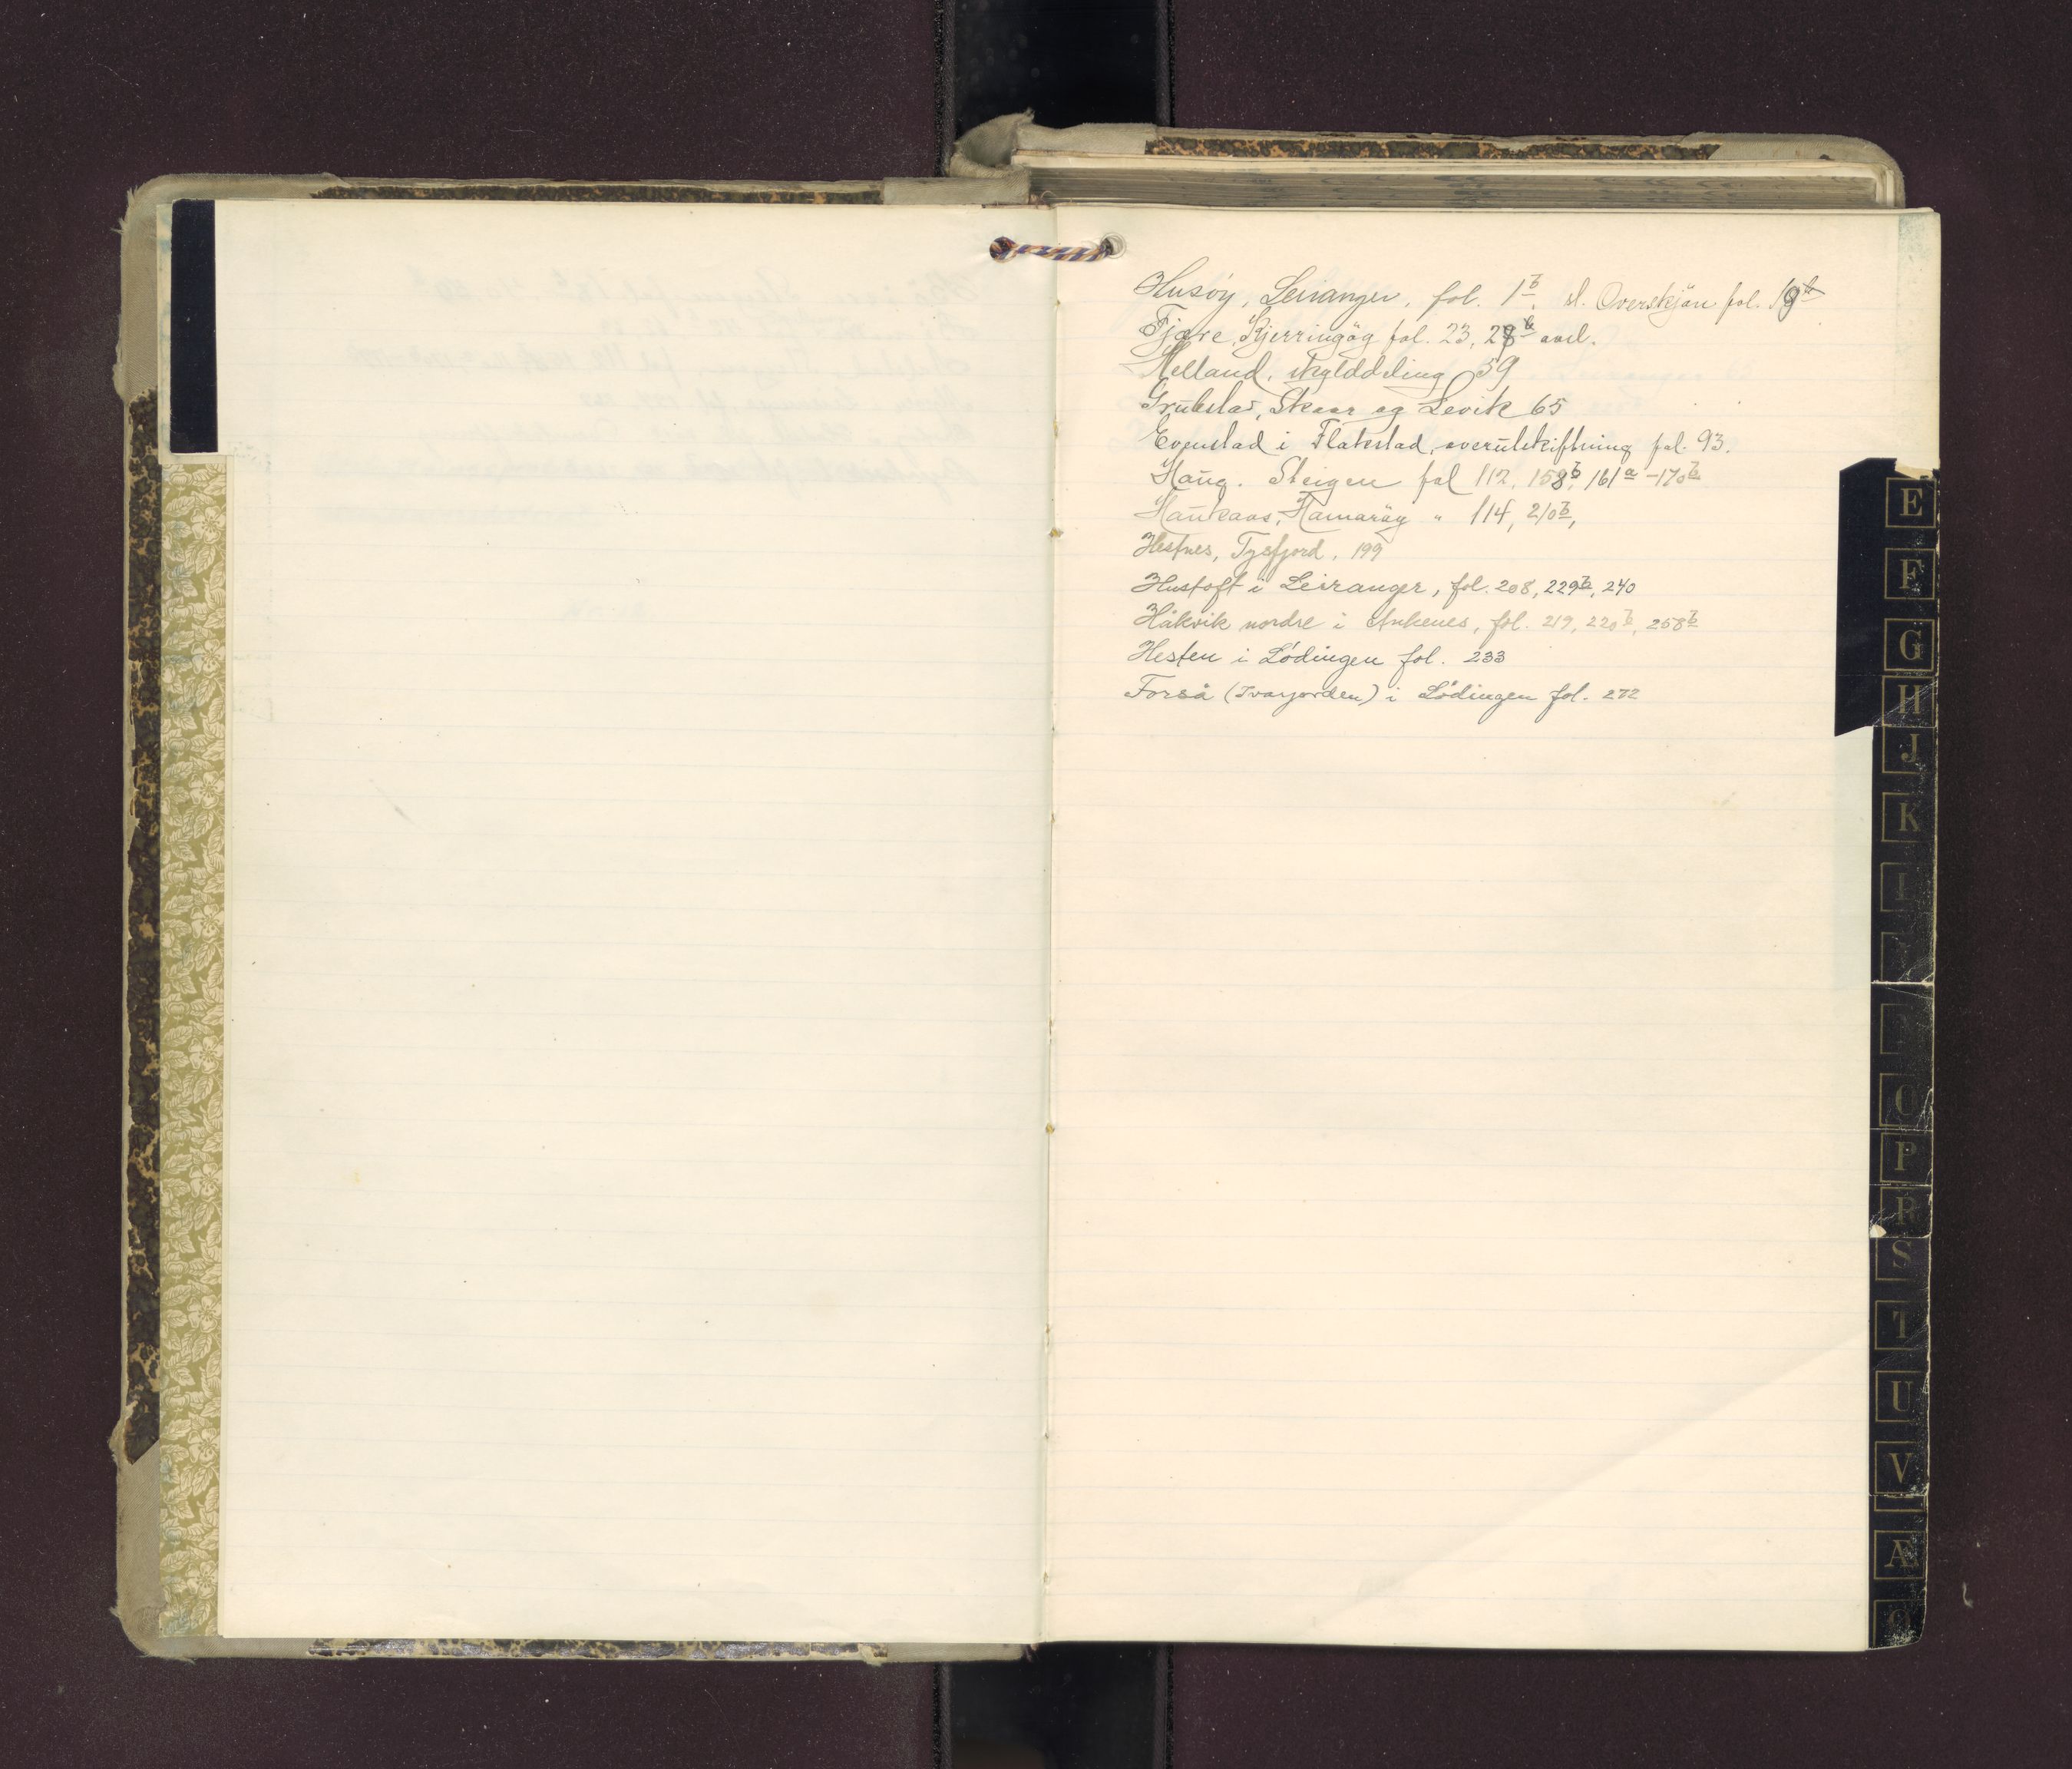 Husöy, Leiranger, fol. 1b, sl. Overskjön fol. 19b
Fjære, Kjerringöy fol. 23, 28b avsl.
Helland, skylddeling 59
Grubstad, Skaar og Levik 65
Evenstad i Flakstad, overutskiftning fol. 93.
Haug. Steigen fol 112, 158b, 161a-170b
Haukaas, Hamaröy " 114, 210b,
Hestnes, Tysfjord, 199
Hustoft i Leiranger, fol. 208, 229b, 240
Håkvik nordre i Ankenes, fol. 219, 220b, 258b
Hesten i Lödingen fol. 233
Forså (Ivarjorden) i Lödingen fol. 272
E
F
G
H
J
K
L
O
P
R
S
T
U
V
Æ
Ø